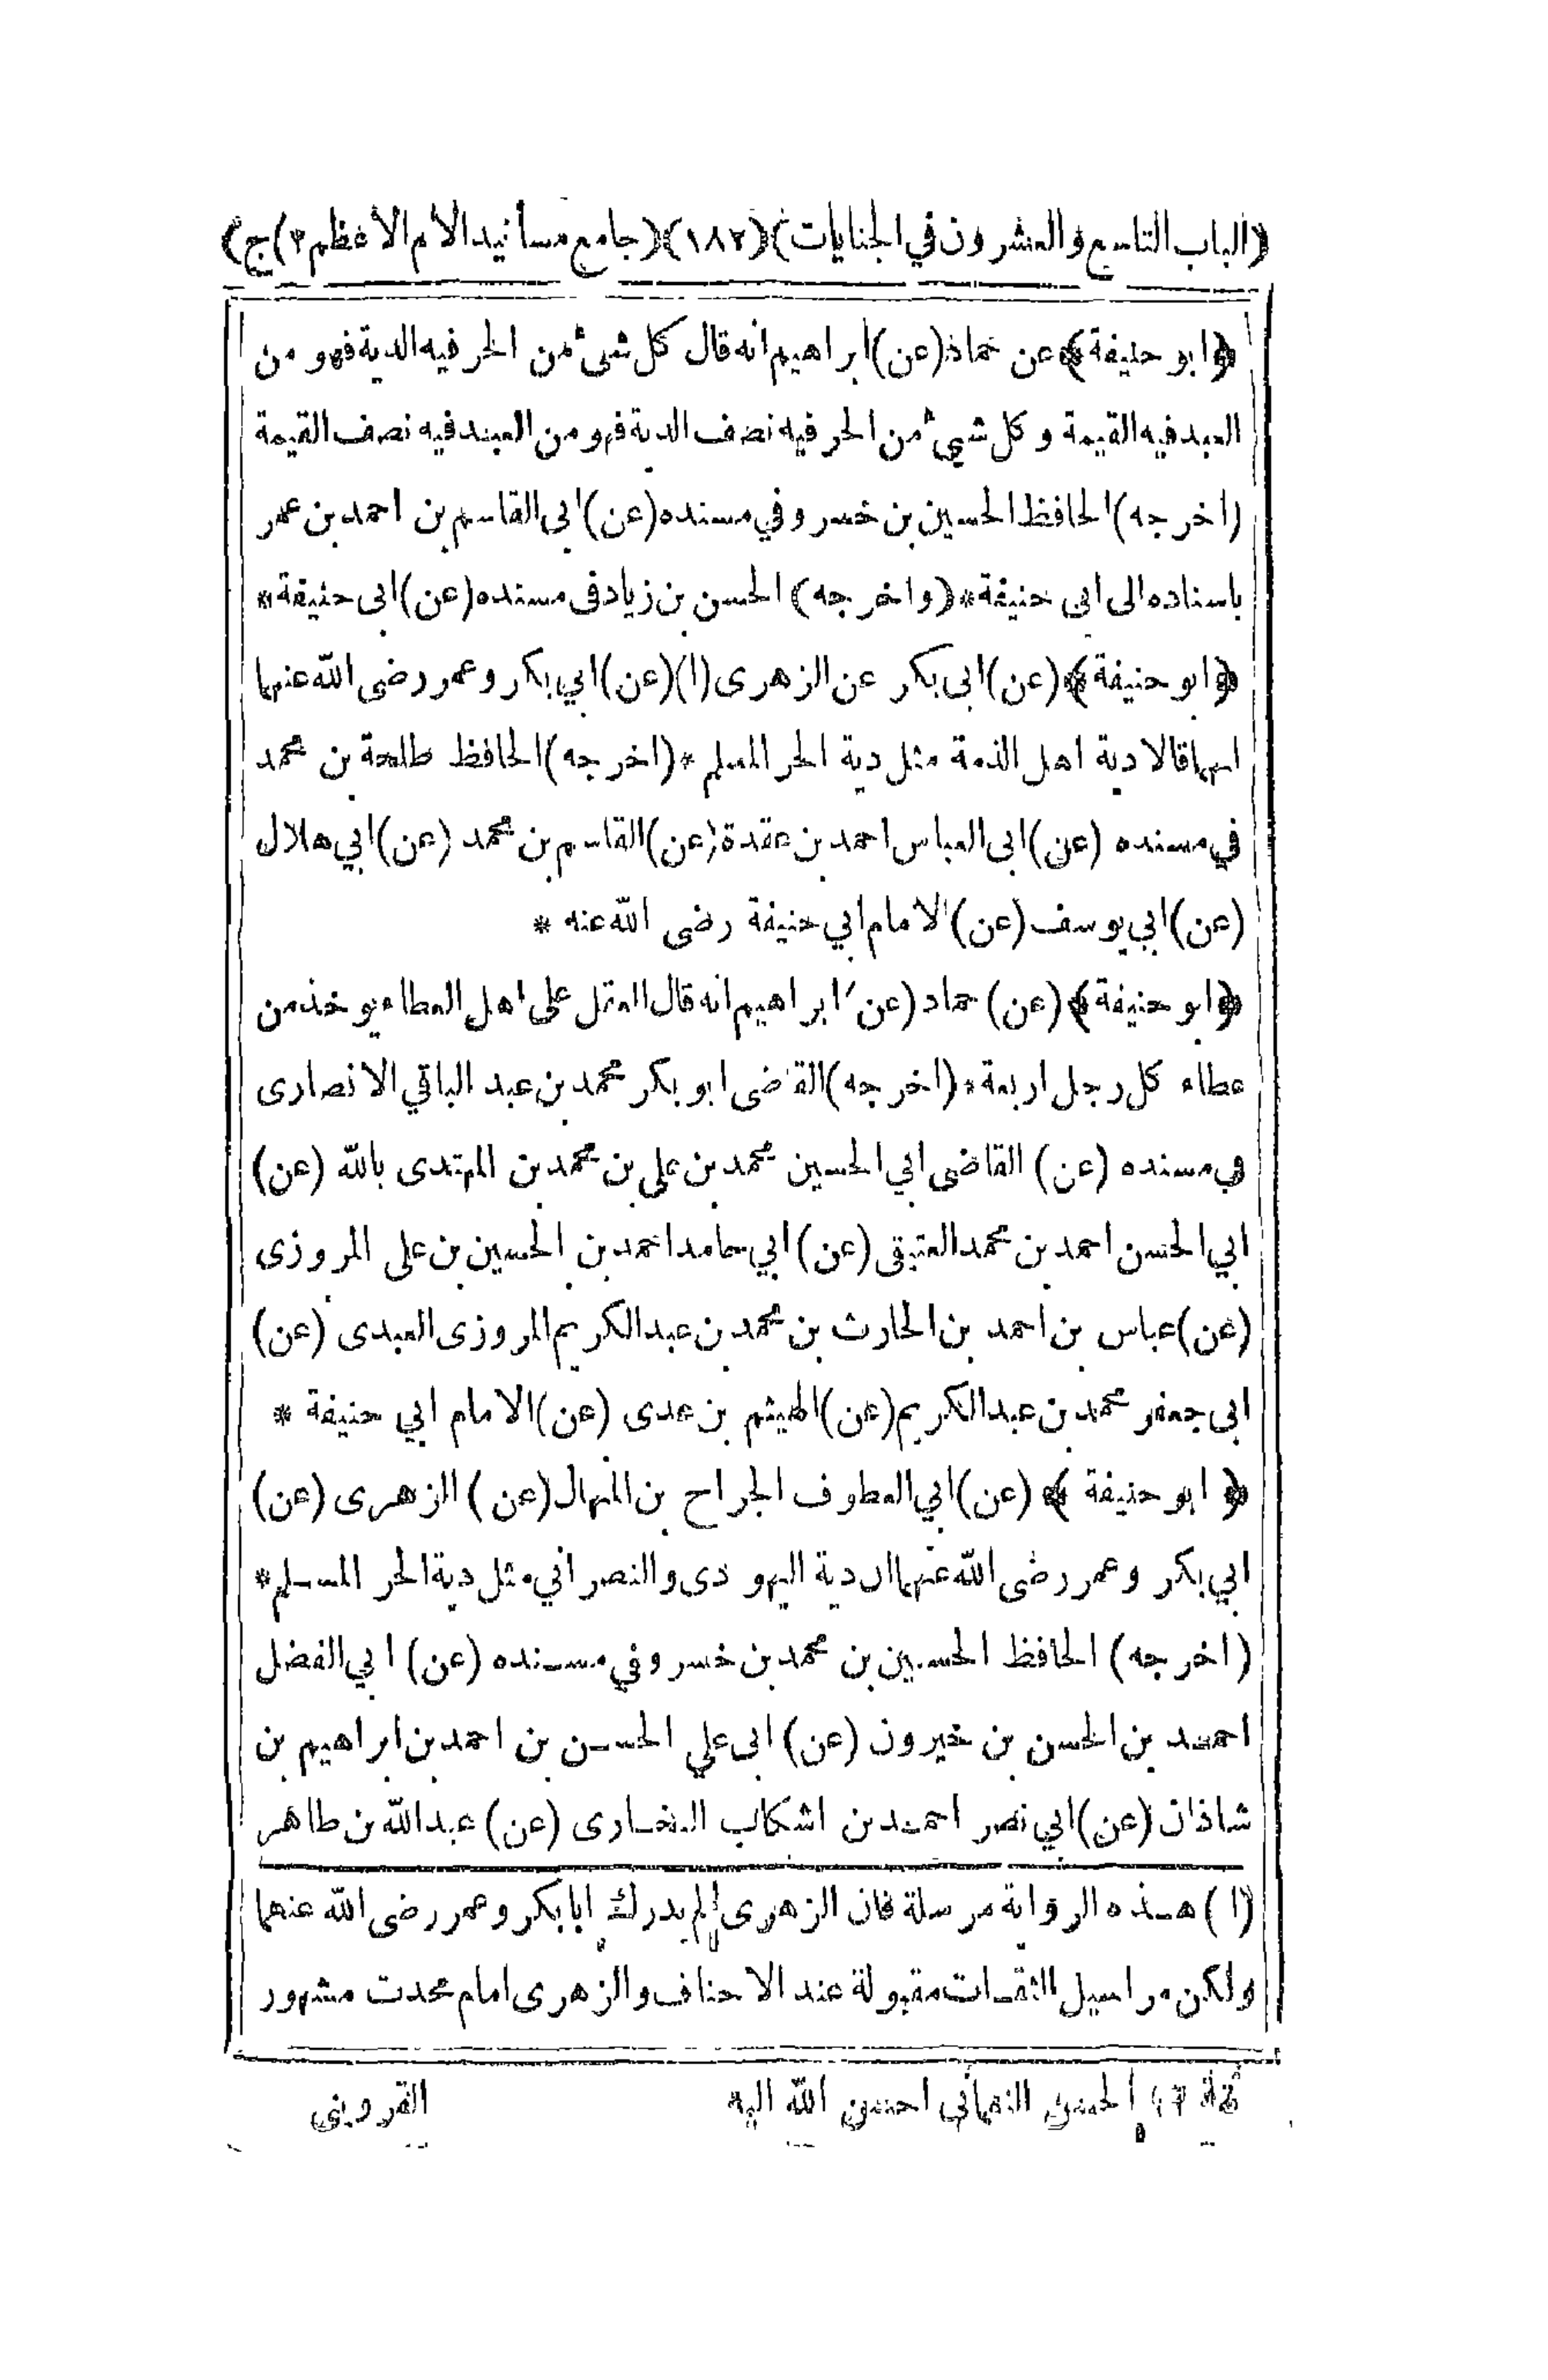 (الباب التاسع والعشرون في الجنايات) (١٨٢) (جامع مسانيد الامام الاعظم ٢) ج)
﴿ابو حنيفة﴾ عن حماد (عن) ابراهيم انه قال كل شئ من الحر فيه الدية فهو من
العبد فيه القيمة و كل شيئ من الحر فيه نصف الدية فهو من العبد فيه نصف القيمة
(اخرجه) الحافظ الحسين بن خسرو في مسنده (عن) ابى القاسم بن احمد بن عمر
باسناده الى ابي حنيفة * (واخرجه) الحسن بن زياد فى مسنده (عن) ابى حنيفة *
﴿ابو حنيفة﴾ (عن) ابى بكر عن الزهرى (١) (عن) ابي بكر وعمر رضى الله عنهما
انهما قالا دية اهل الذمة مثل دية الحر المسلم * (اخرجه) الحافظ طلحة بن محمد
في مسنده (عن) ابى العباس احمد بن عقدة (عن) القاسم بن محمد (عن) ابي هلال
(عن) ابي يوسف (عن) الامام ابي حنيفة رضى الله عنه *
﴿ابو حنيفة﴾ (عن) حماد (عن) ابراهيم انه قال العقل على اهل العطاء يوخذ من
عطاء كل رجل اربعة * (اخرجه) القاضى ابو بكر محمد بن عبد الباقي الانصارى
في مسنده (عن) القاضى ابي الحسين محمد بن علي بن محمد بن المهتدى بالله (عن)
ابي الحسن احمد بن محمد العتيقى (عن) ابي حامد احمد بن الحسين بن على المروزى
(عن) عباس بن احمد بن الحارث بن محمد بن عبد الكريم المروزى العبدى (عن)
ابى جعفر محمد بن عبد الكريم (عن) الهيثم بن عدى (عن) الامام ابي حنيفة *
﴿ابو حنيفة﴾ (عن) ابي العطوف الجراح بن المنهال (عن) الزهرى (عن)
ابي بكر وعمر رضى الله عنهما ان دية اليهودى والنصراني مثل دية الحر المسلم *
(اخرجه) الحافظ الحسين بن محمد بن خسرو في مسنده (عن) ابي الفضل
احمد بن الحسن بن خيرون (عن) ابى علي الحسن بن احمد بن ابراهيم بن
شاذان (عن) ابي نصر احمد بن اشكاب البخارى (عن) عبد الله بن طاهر
(١) هذه الرواية مرسلة فان الزهرى لم يدرك ابا بكر وعمر رضى الله عنهما
ولكن مراسيل الثقات مقبولة عند الاحناف والزهرى امام محدث مشهور
الحسن النعماني احسن الله اليه القزوينى